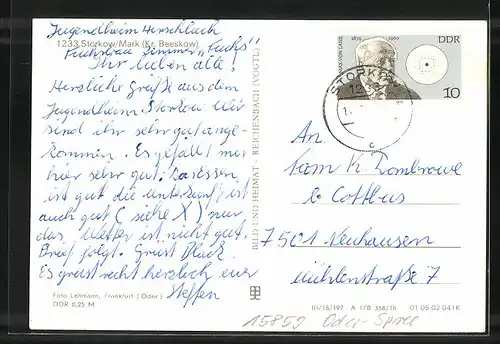 Jugendheim Hirschluch
1233 Storkow/Mark (Kr. Beeskow)
Fuchsbau Zimmer „Fuchs"
Ihr lieben alle!
Herzliche Grüße aus dem
Jugendheim Storkow. Wir
sind ihr sehr gut ange-
kommen. Es gefällt mir
hier sehr gut.
ist gut die unterkunft ist
auch gut (siehe X) nur
das Wetter ist nicht gut.
Brief folgt. Grüst
Es grüst recht herzlich euer
Steffen
Foto Lehmann, Frankfurt (Oder)
DDR 0,25 M
BILD UND HEIMAT · REICHENBACH (VOGTL)
MAX VON LAUE
1879 1960
DDR
10
STORKOW
c
An
Fam K.
b Cottbus
7501 Neuhausen
Mühlenstraße 7
III/18/197 A 1/B 01 05 02 041 K
15859 Oder-Spree